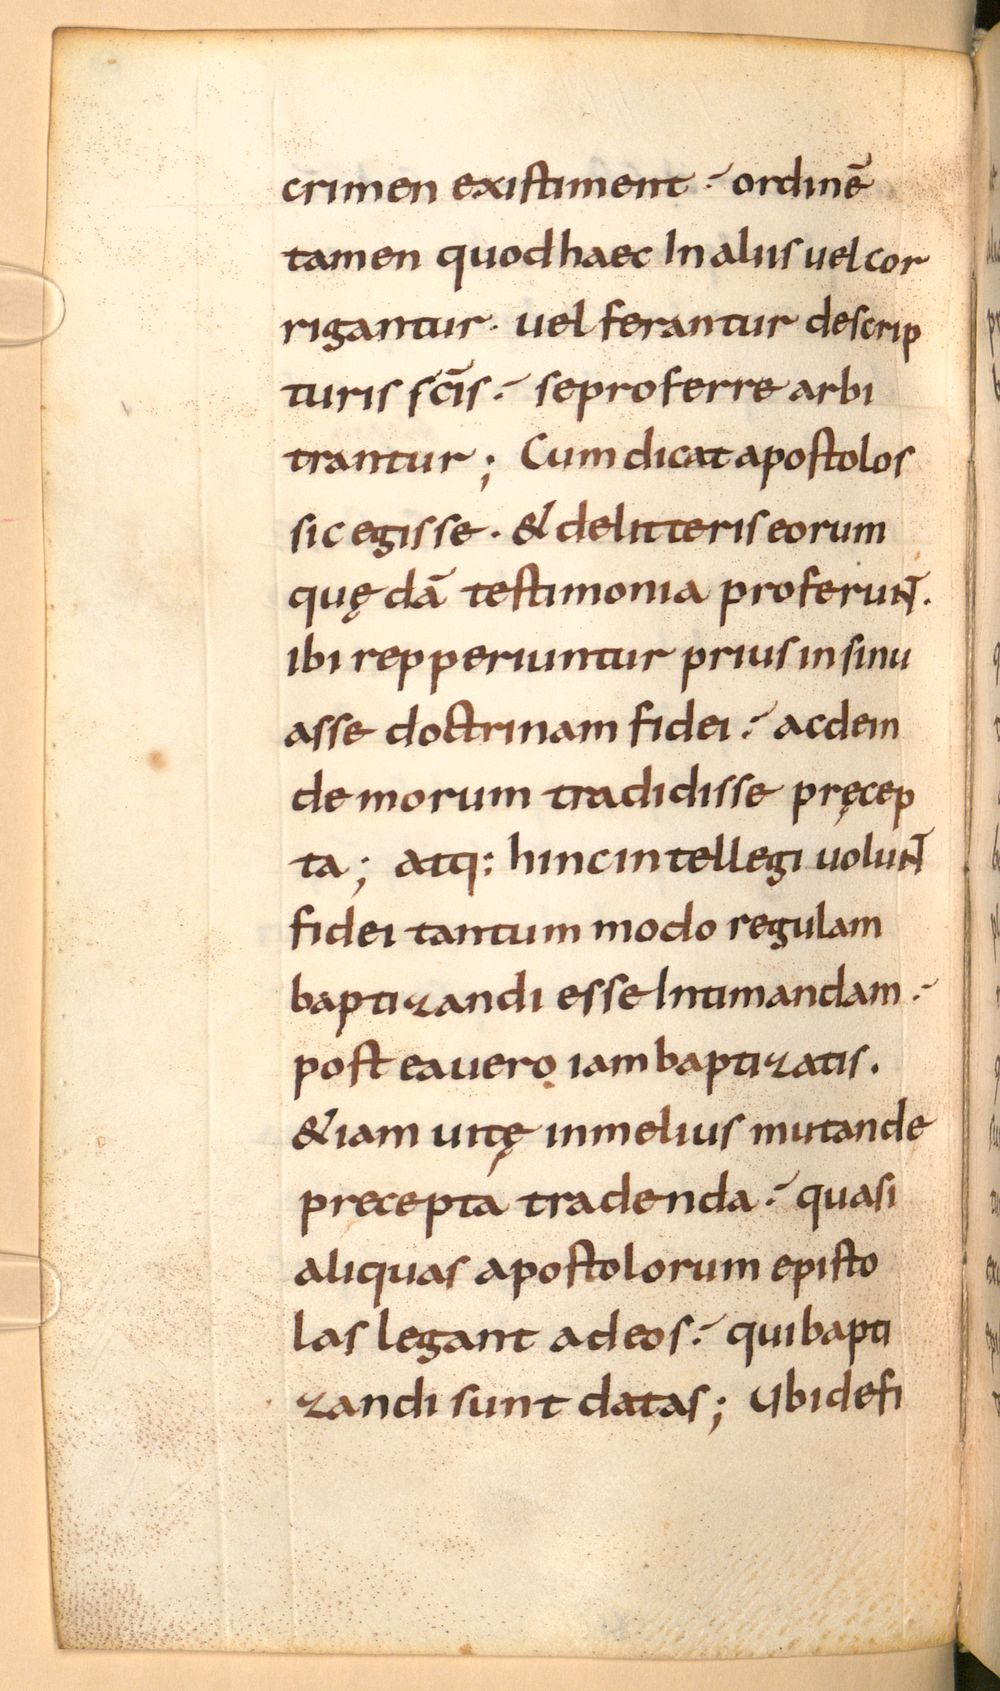 crimen existiment ordinē
tamen quod haec In aliis uel cor
rigantur· uel ferantur descrip
turis sc̄is se proferre arbi
trantur; Cum dicat apostolos
sic egisse· & de litteris eorum
quędā testimonia proferuꞃ̄t.
ibi repperiuntur prius insinu
asse doctrinam fidei ac dein
de morum tradidisse pręcep
ta; atq: hinc intellegi uoluꞃ̄t
fidei tantum modo regulam
baptizandi esse Intimandam
post ea uero iam baptizatis.
& iam uitę in melius mutande
precepta tradenda quasi
aliquas apostolorum episto
las legant ad eos qui bapti
zandi sunt datas; Ubi de fi